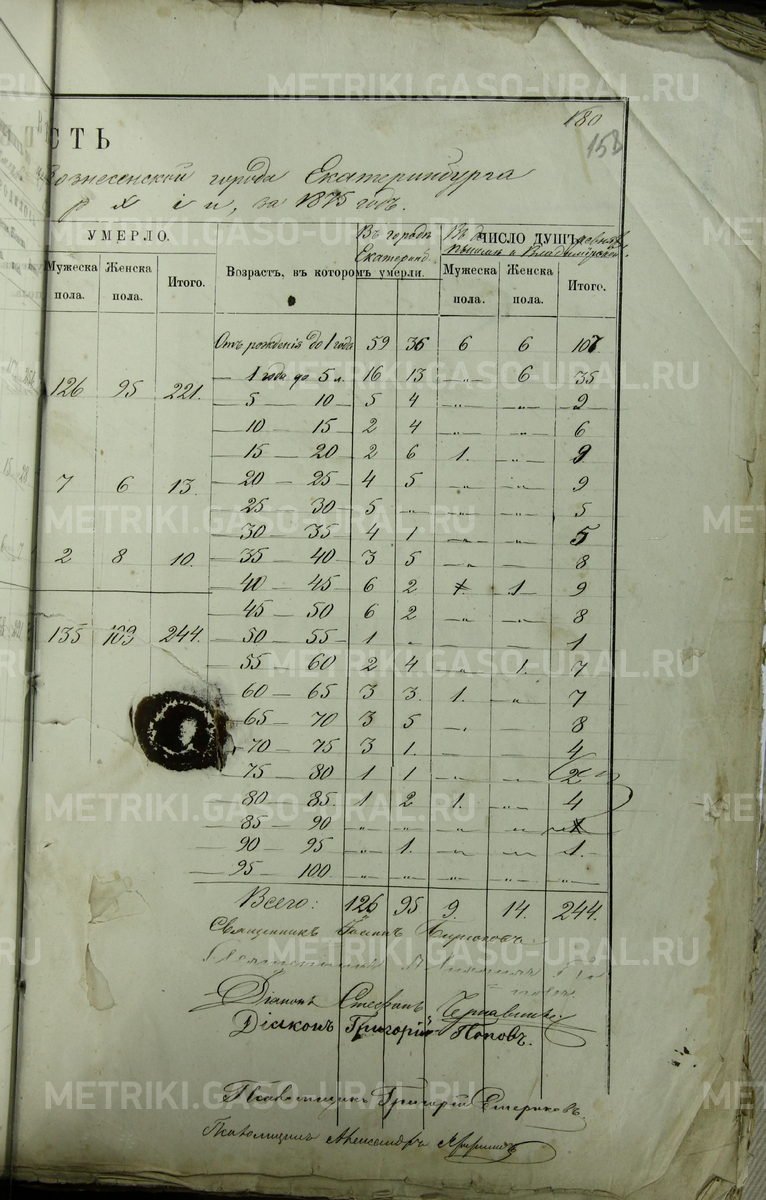 METRIKI.GASO-URAL.RU
180
СТЬ
153
ознесенской города Екатеринбурга
р х і и, за 1875 годъ.
УМЕРЛО. Въ городѣ Екатеринб. ЧИСЛО ДУШЪ
Мужеска пола. Женска пола. Итого. Возрастъ, въ которомъ умерли. Мужеска пола. Женска пола. Итого.
Отъ рожденія до 1 года 59 36 6 6 107
126 95 221. 1 года до 5 л. 16 13 „ 6 35
5 — 10 5 4 „ „ 9
10 — 15 2 4 „ „ 6
15 — 20 2 6 1. „ 9
7 6 13. 20 — 25 4 5 „ „ 9
25 — 30 5 „ „ „ 5
30 — 35 4 1 „ „ 5
2 8 10. 35 — 40 3 5 „ „ 8
40 — 45 6 2 1 9
45 — 50 6 2 „ „ 8
135 109 244. 50 — 55 1 „ „ „ 1
55 — 60 2 4 „ 1. 7
60 — 65 3 3. 1. „ 7
65 — 70 3 5 „ „ 8
70 — 75 3 1. „ „ 4
75 — 80 1 1 „ „ 2
80 — 85. 1 2 1. „ 4
85 — 90 „ „ „ „
90 — 95 „ 1. „ „ 1.
95 — 100. „ „ „ „ „
Всего: 126 95 9. 14. 244.
Священникъ Іоаннъ
Діаконъ Стефанъ
Діаконъ Григорій Поповъ.
Псаломщикъ Григорій
Псаломщикъ Александръ